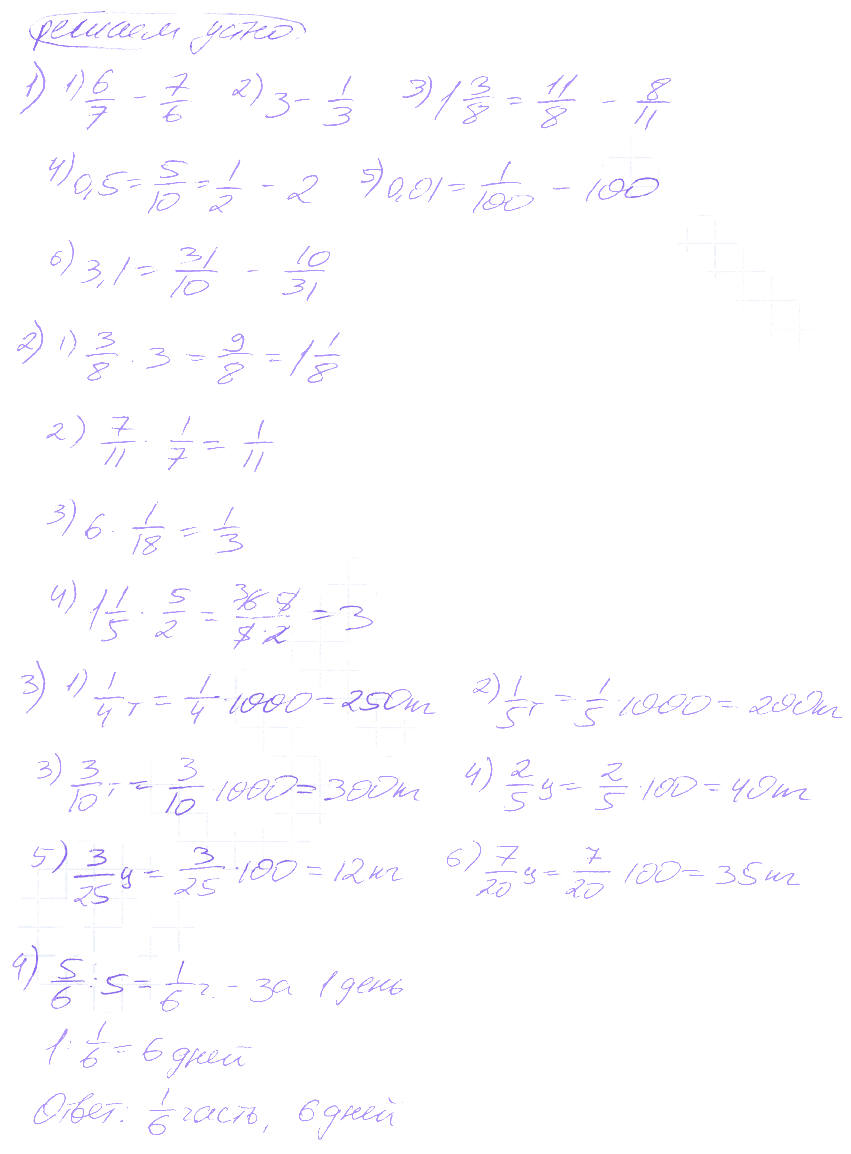 Решаем устно.
1) 1) 6/7 - 7/6 2) 3 - 1/3 3) 1 3/8 = 11/8 - 8/11
4) 0,5 = 5/10 = 1/2 - 2 5) 0,01 = 1/100 - 100
6) 3,1 = 31/10 - 10/31
2) 1) 3/8 · 3 = 9/8 = 1 1/8
2) 7/11 · 1/7 = 1/11
3) 6 · 1/18 = 1/3
4) 1 1/5 · 5/2 = 3 6·5/5·2 = 3
3) 1) 1/4 т = 1/4 · 1000 = 250 кг 2) 1/5 т = 1/5 · 1000 = 200 кг
3) 3/10 т = 3/10 · 1000 = 300 кг 4) 2/5 ц = 2/5 · 100 = 40 кг
5) 3/25 ц = 3/25 · 100 = 12 кг 6) 7/20 ц = 7/20 · 100 = 35 кг
4) 5/6 : 5 = 1/6 ч. - за 1 день
1 : 1/6 = 6 дней
Ответ: 1/6 часть, 6 дней